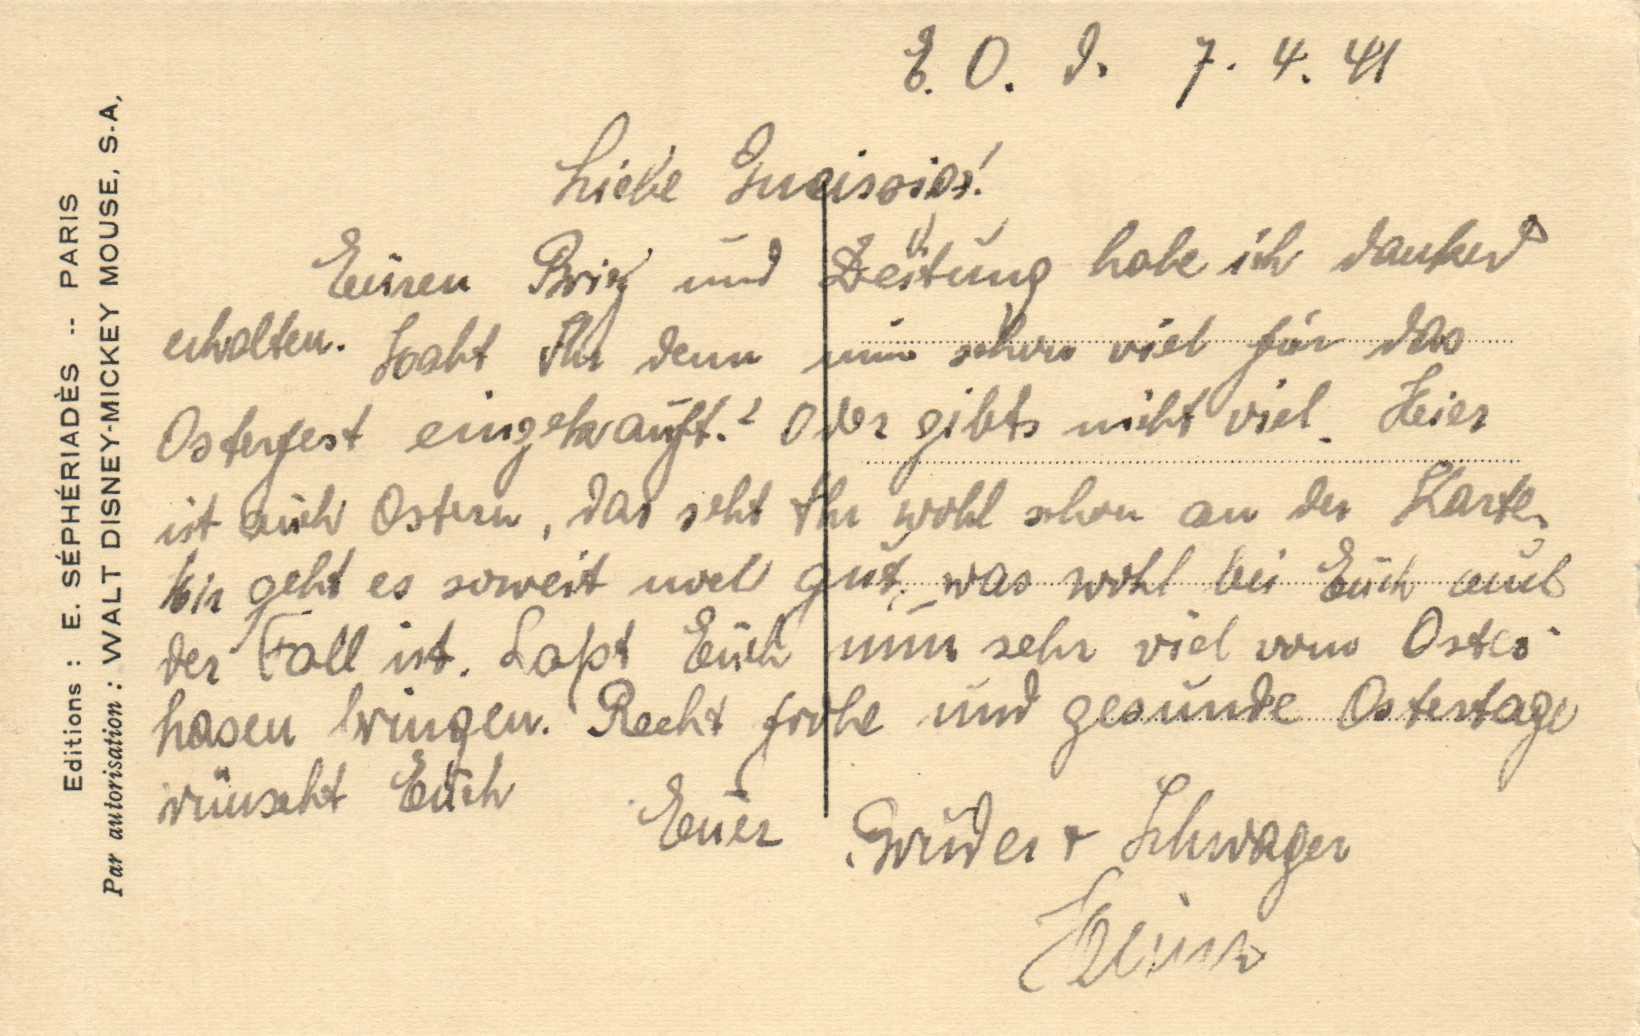 E. O. d. 7. 4. 41
Liebe
Euren Brief und Zeitung habe ich dankend
erhalten. Habt Ihr denn nun schon viel für das
Osterfest eingekauft.? Oder gibts nicht viel. Hier
ist auch Ostern, das seht Ihr wohl schon an der Karte.
Mir geht es soweit noch gut, was wohl bei Euch auch
der Fall ist. Laßt Euch nun sehr viel vom Oster
hasen bringen. Recht frohe und gesunde Ostertage
wünscht Euch
Euer Bruder + Schwager
Heinz
Editions : E. SÉPHÉRIADÈS -- PARIS
Par autorisation : WALT DISNEY-MICKEY MOUSE, S.A,